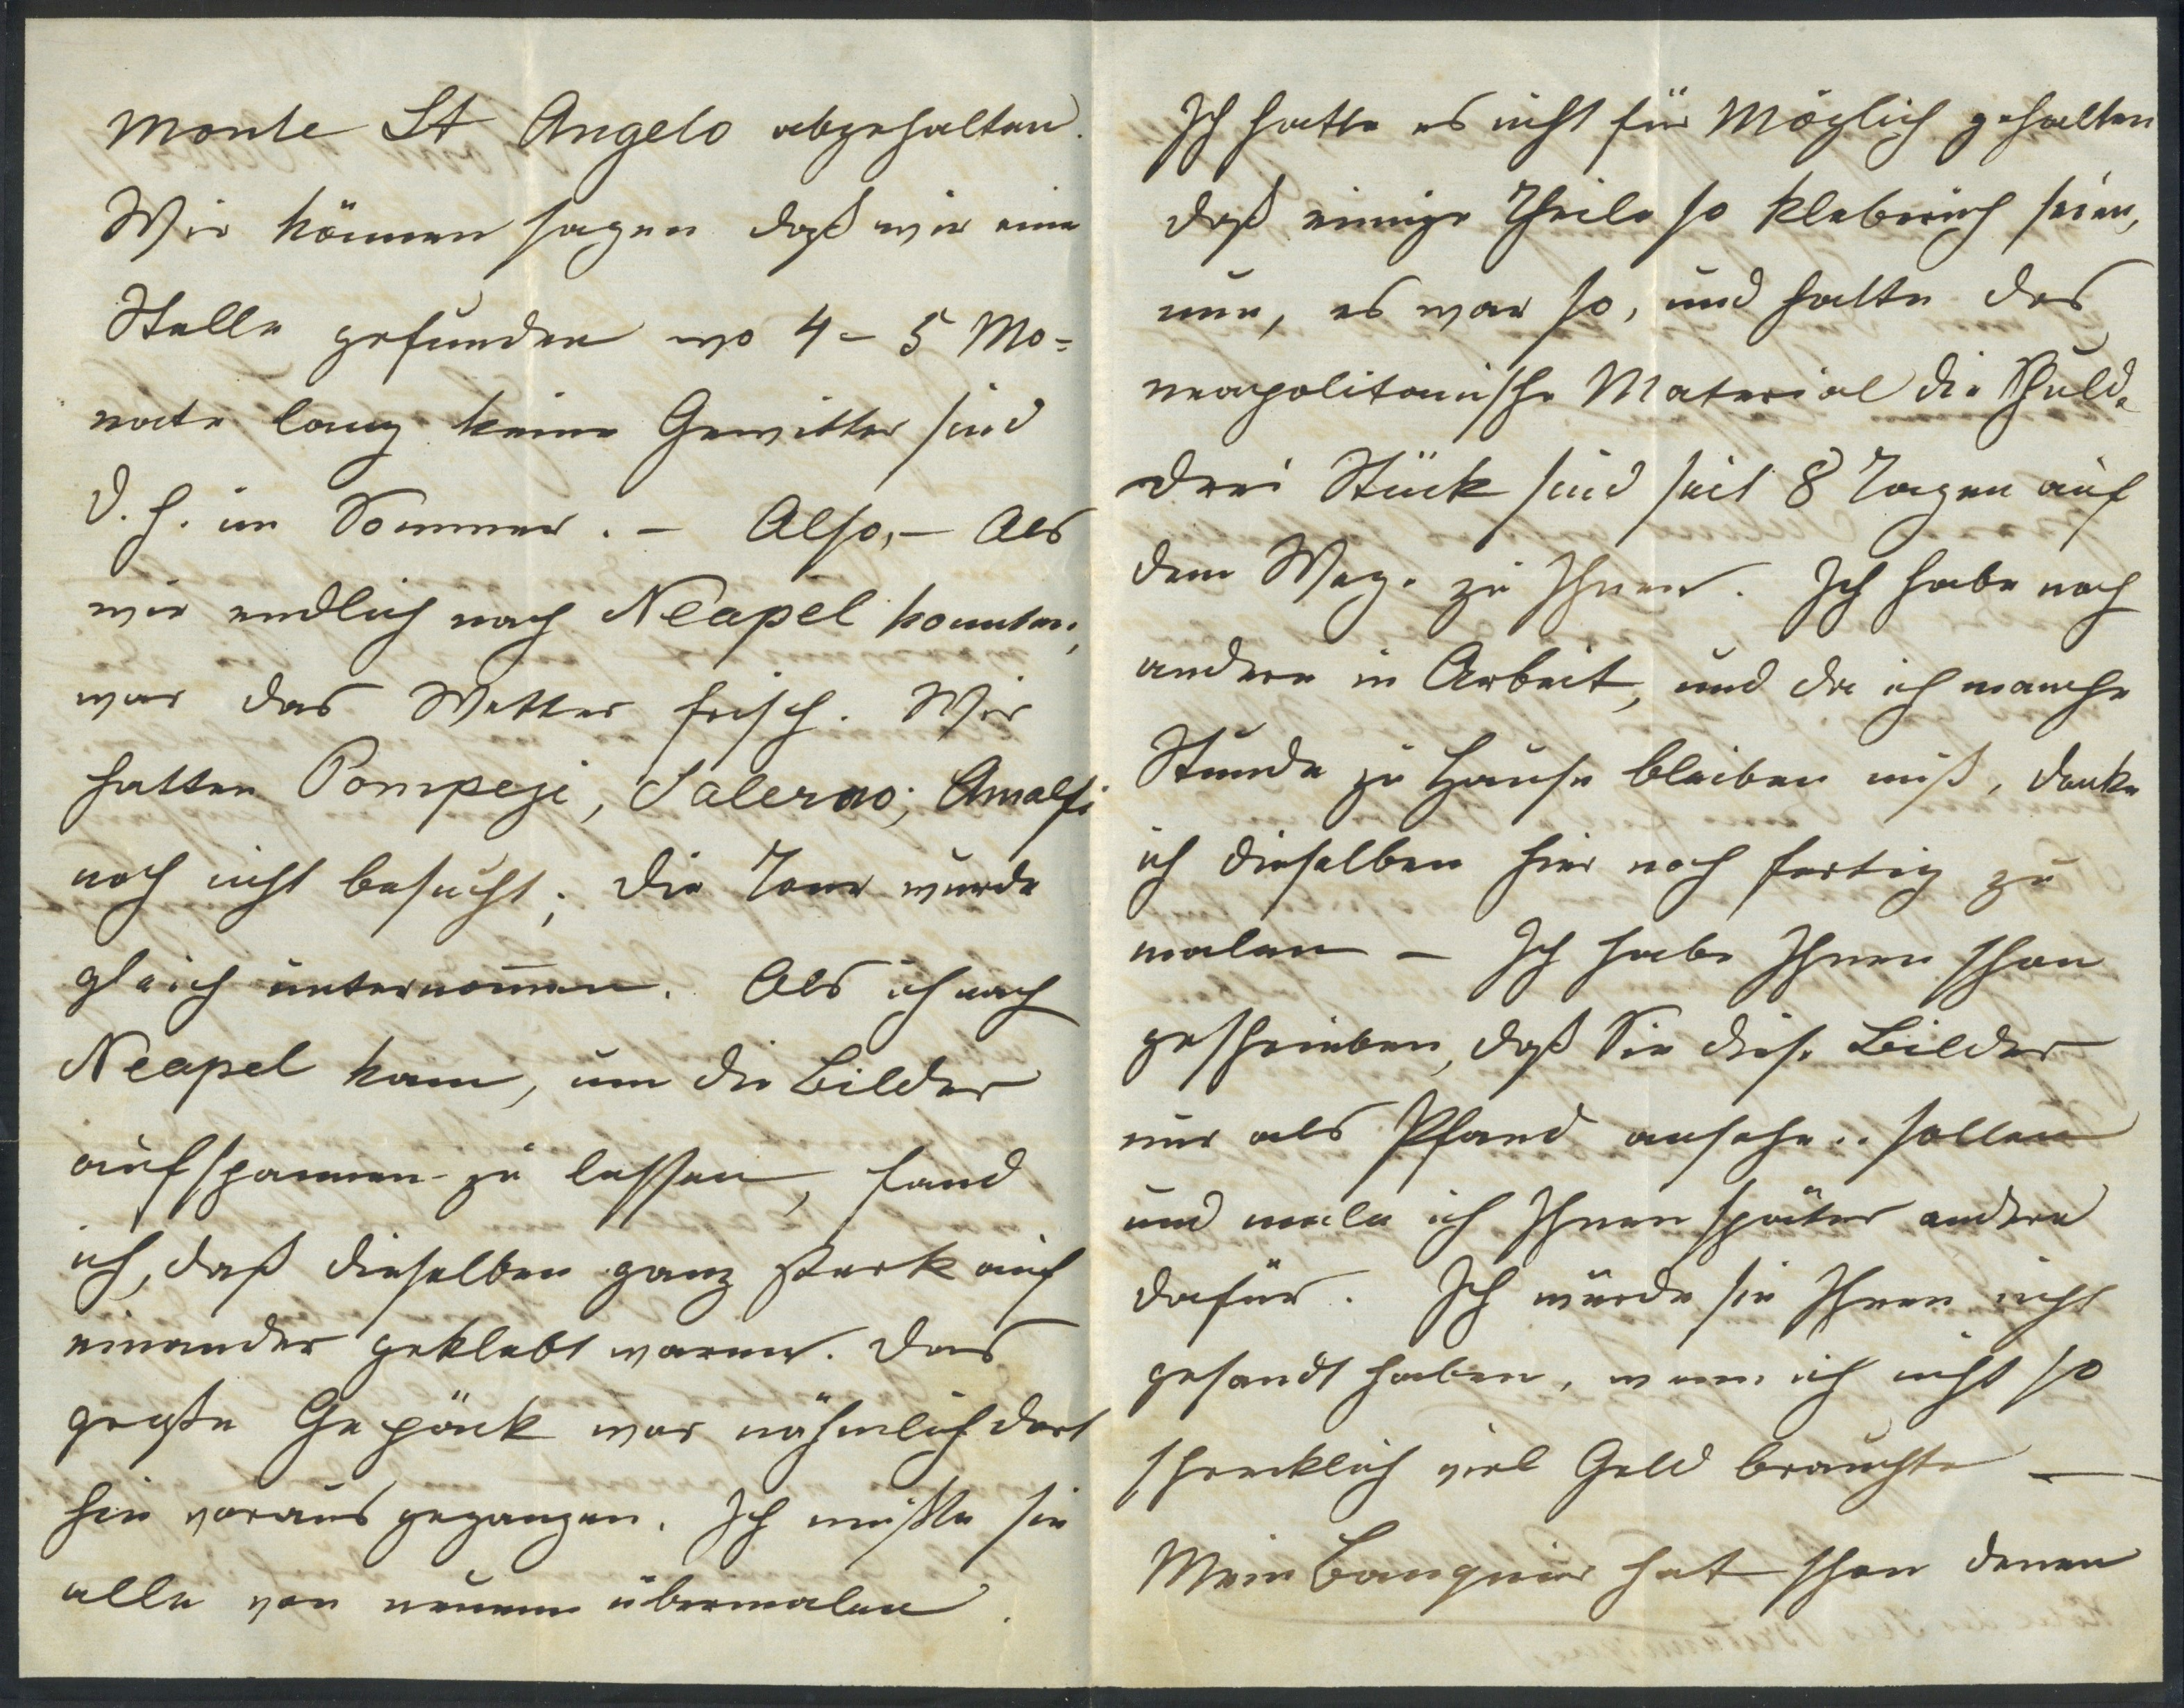 Monte St Angelo abgehalten.
Wir können sagen daß wir eine
Stelle gefunden wo 4-5 Mo=
nate lang keine Gewitter sind
d. h. im Sommer. — Also, — Als
wir endlich nach Neapel konnten,
war das Wetter frisch. Wir
hatten Pompeji, Salerno, Amalfi
noch nicht besucht; die Tour wurde
gleich unternom̅en. Als ich nach
Neapel kam, um die Bilder
aufspannen zu lassen, fand
ich, daß dieselben ganz stark auf
einander geklebt waren. Das
große Gepäck war nähmlich dort
hin voraus gegangen. Ich mußte sie
alle von neuem übermalen.
Ich hatte es nicht für Möglich gehalten
daß einige Theile so kleberich seien,
nun, es war so, und hatte das
neapolitanische Material die Schuld.
Drei Stück sind seit 8 Tagen auf
dem Wege zu Ihnen. Ich habe noch
andere in Arbeit, und da ich manche
Stunde zu Hause bleiben muß, denke
ich dieselben hier noch fertig zu
malen — Ich habe Ihnen schon
geschrieben, daß Sie diese Bilder
nur als Pfand ansehen sollen
und male ich Ihnen später andere
dafür. Ich würde sie Ihnen nicht
gesandt haben, wenn ich nicht so
schrecklich viel Geld brauchte —
Mein Banquier hat schon denen